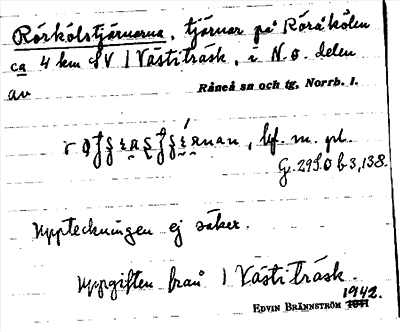 Rörkölstjärnarna, tjärnar på Röråkölen
ca 4 km SV / Västiträsk, i N.ö. delen
av
Råneå sn och tg, Norrb. l.
, lgf. m. pl.
G. 29S.O b.3, 138.
Uppteckningen ej säker.
Uppgiften från / Västiträsk.
1942.
EDVIN BRÄNNSTRÖM 1941